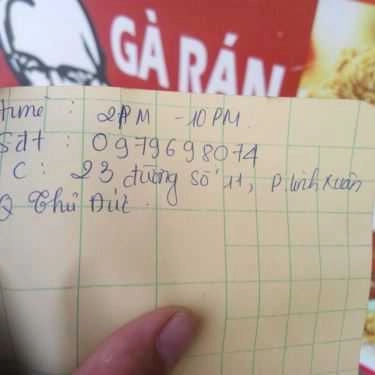 GÀ RÁN
time : 2PM - 10PM.
Sđt : 0979698074
C : 23 đường số 11, P. Linh Xuân
Q Thủ Đức.